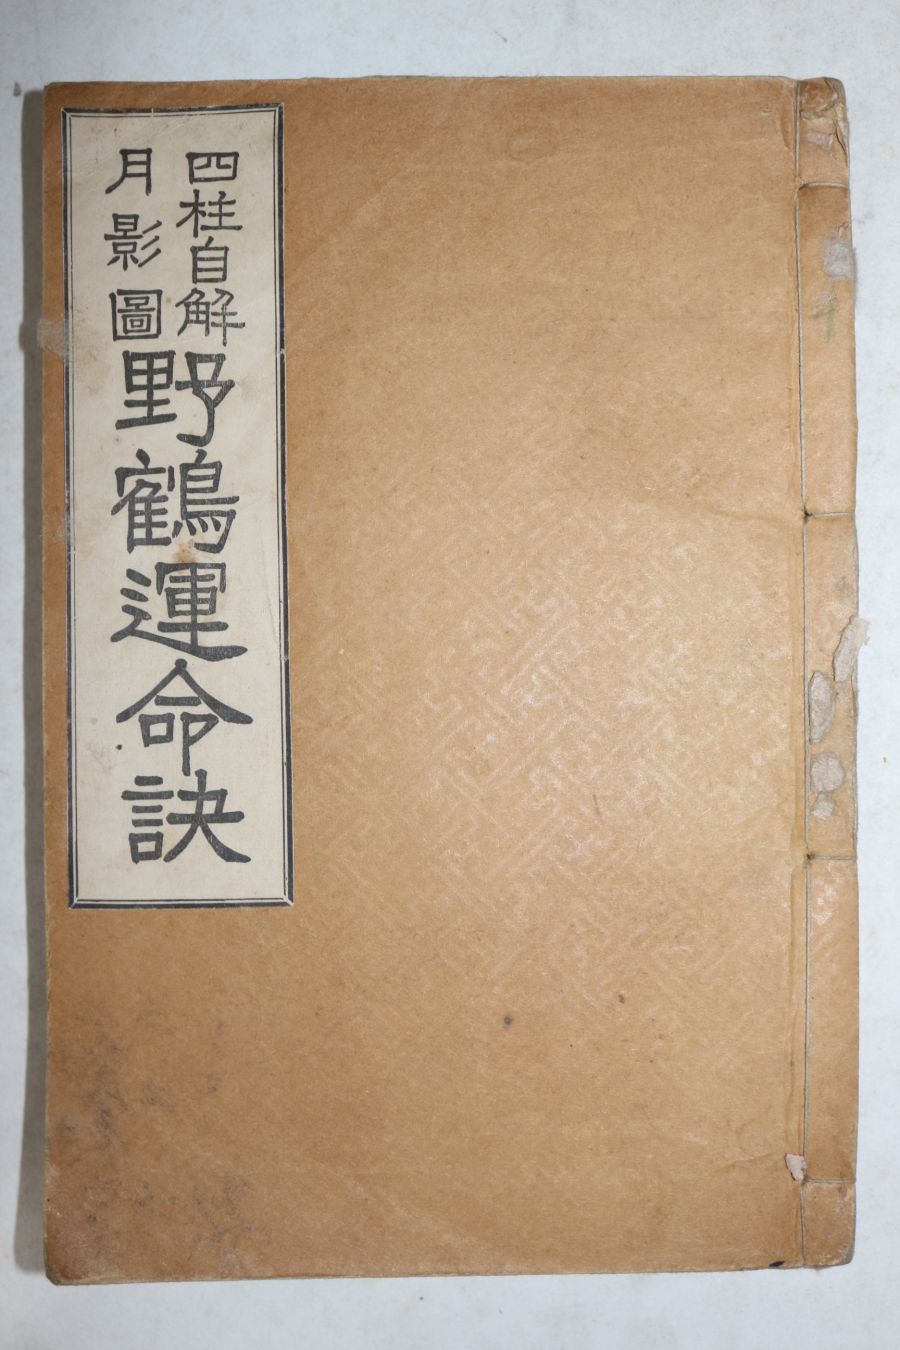 四柱自解
月影圖
野鶴運命訣